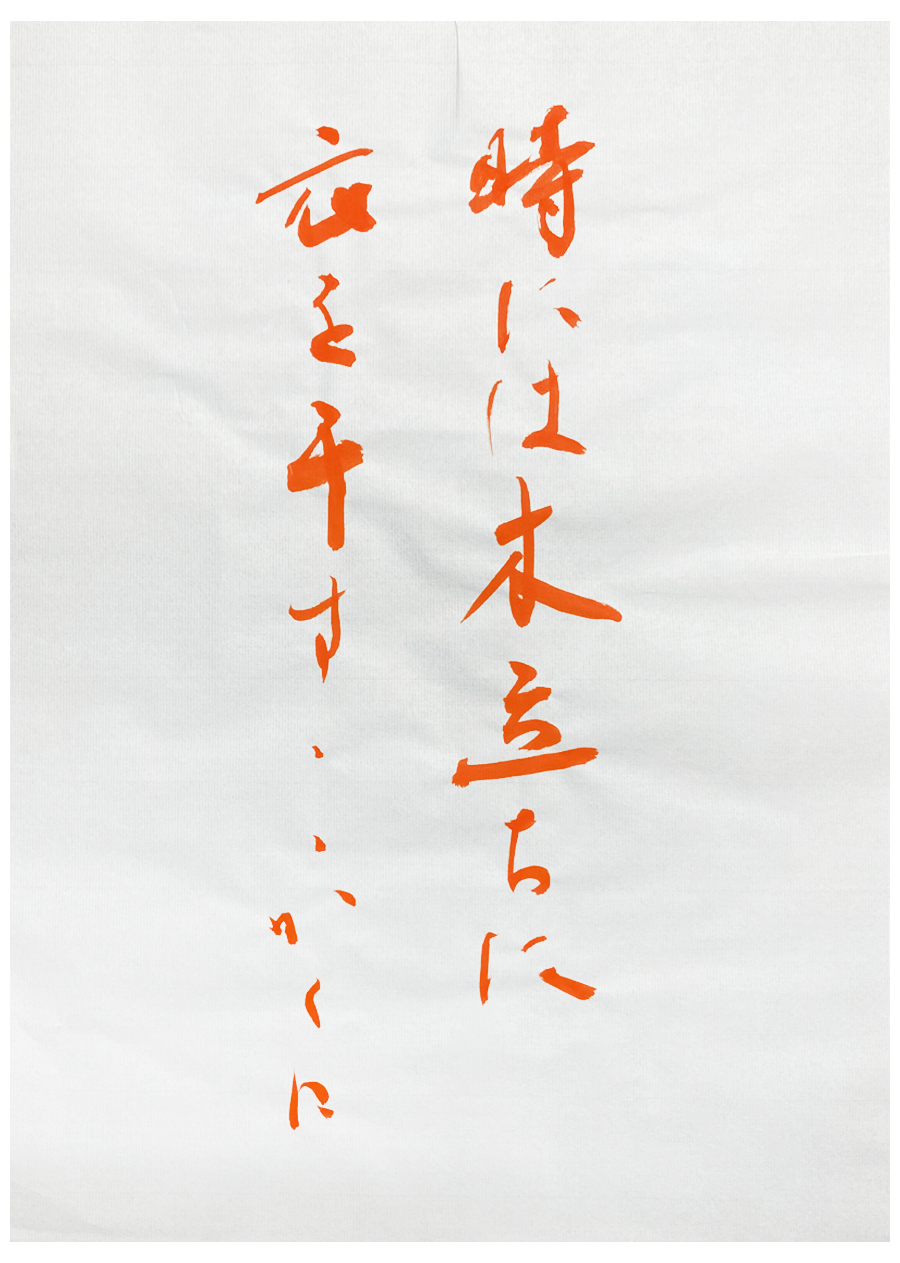 時には木立ちに
衣を干す・・かくに